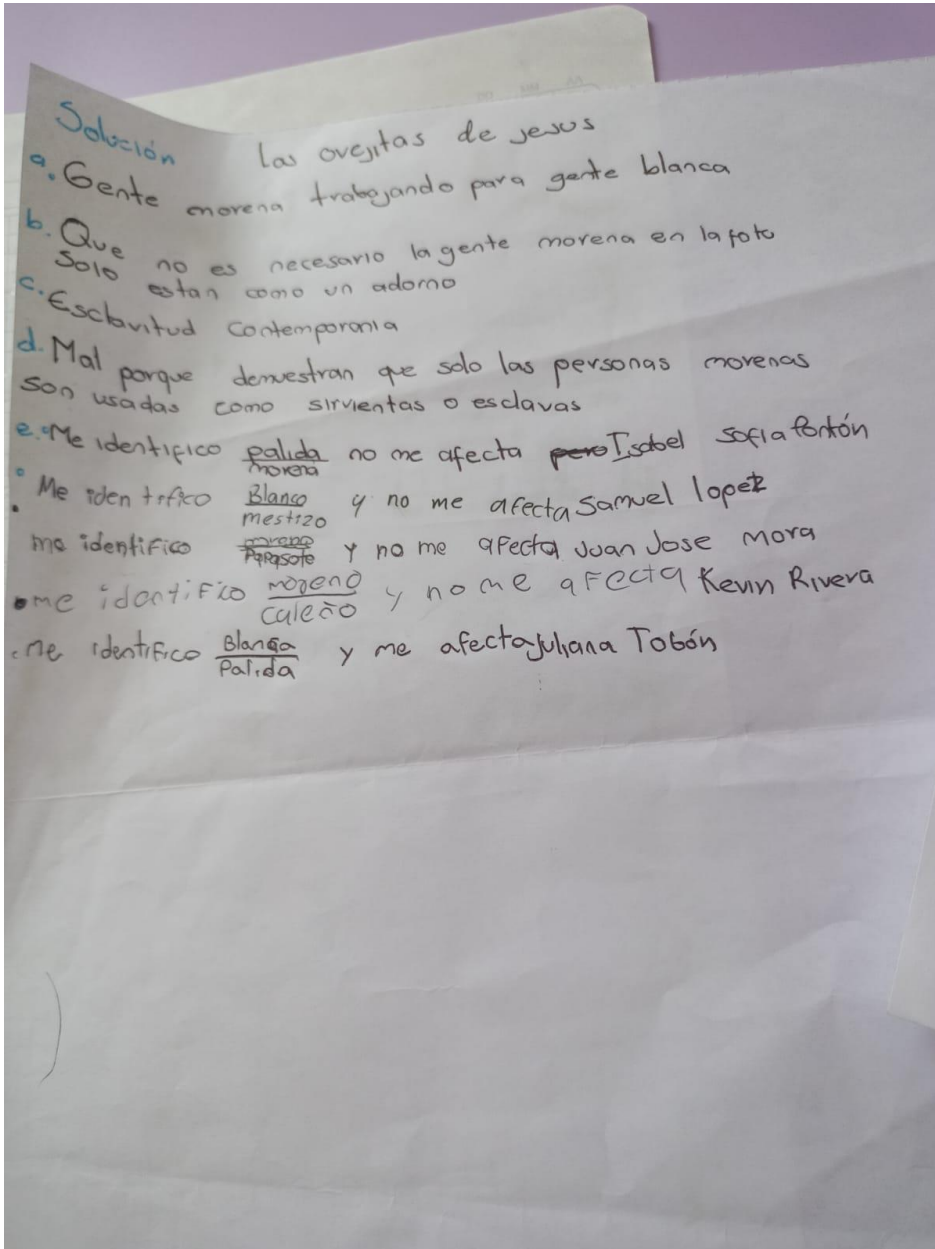 Solución Las ovejitas de jesus
a. Gente morena trabajando para gente blanca
b. Que no es necesario la gente morena en la foto
solo estan como un adorno
c. Esclavitud Contemporania
d. Mal porque demuestran que solo las personas morenas
son usadas como sirvientas o esclavas
e. Me identifico palida/morena no me afecta pero Isabel Sofia Pontón
Me identifico Blanco/mestizo y no me afecta Samuel lopez
me identifico moreno/Papasote y no me afecta Juan Jose Mora
me identifico moreno/caleño y no me afecta Kevin Rivera
Me identifico Blanca/Palida y me afecta Juliana Tobón